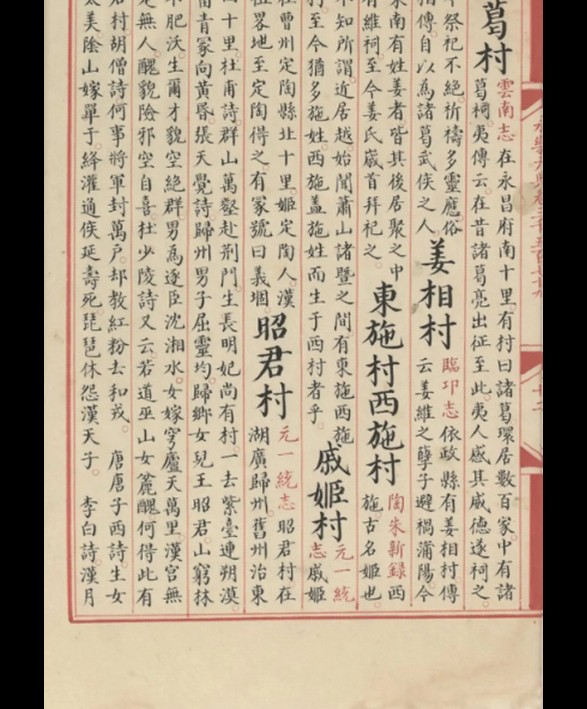 葛村
雲南志在永昌府南十里有村曰諸葛環居數百家中有諸
葛祠夷傳云在昔諸葛亮出征至此夷人感其威德遂祠之
祭祀不絕祈禱多靈應俗
傳自以爲諸葛武侯之人
姜相村
臨邛志依政縣有姜相村傳
云姜維之孽子避禍蒲陽今
南有姓姜者皆其後居聚之中
有維祠至今姜氏歲首拜祀之
東施村西施村
陶朱新錄西
施古名姬也
不知所謂近居越始聞蕭山諸暨之間有東施西施
村至今猶多施姓西施蓋施姓而生于西村者乎
戚姬村
元一統
志戚姬
在曹州定陶縣北十里姬定陶人漢
祖畧地至定陶得之有冢號曰義堌
昭君村
元一統志昭君村在
湖廣歸州舊州治東
四十里杜甫詩群山萬壑赴荆門生長明妃尚有村一去紫臺連朔漠
留青冢向黃昏張天覺詩歸州男子屈靈均歸鄉女兒王昭君山窮林
不肥沃生爾才貌空絕群男爲逐臣沈湘水女嫁穹廬天萬里漢宮無
無人醜貌險邪空自喜杜少陵詩又云若道巫山女麄醜何得此有
君村胡僧詩何事將軍封萬户却教紅粉去和戎 唐唐子西詩生女
太美陰山嫁單于絳灌通侯延壽死琵琶休怨漢天子 李白詩漢月